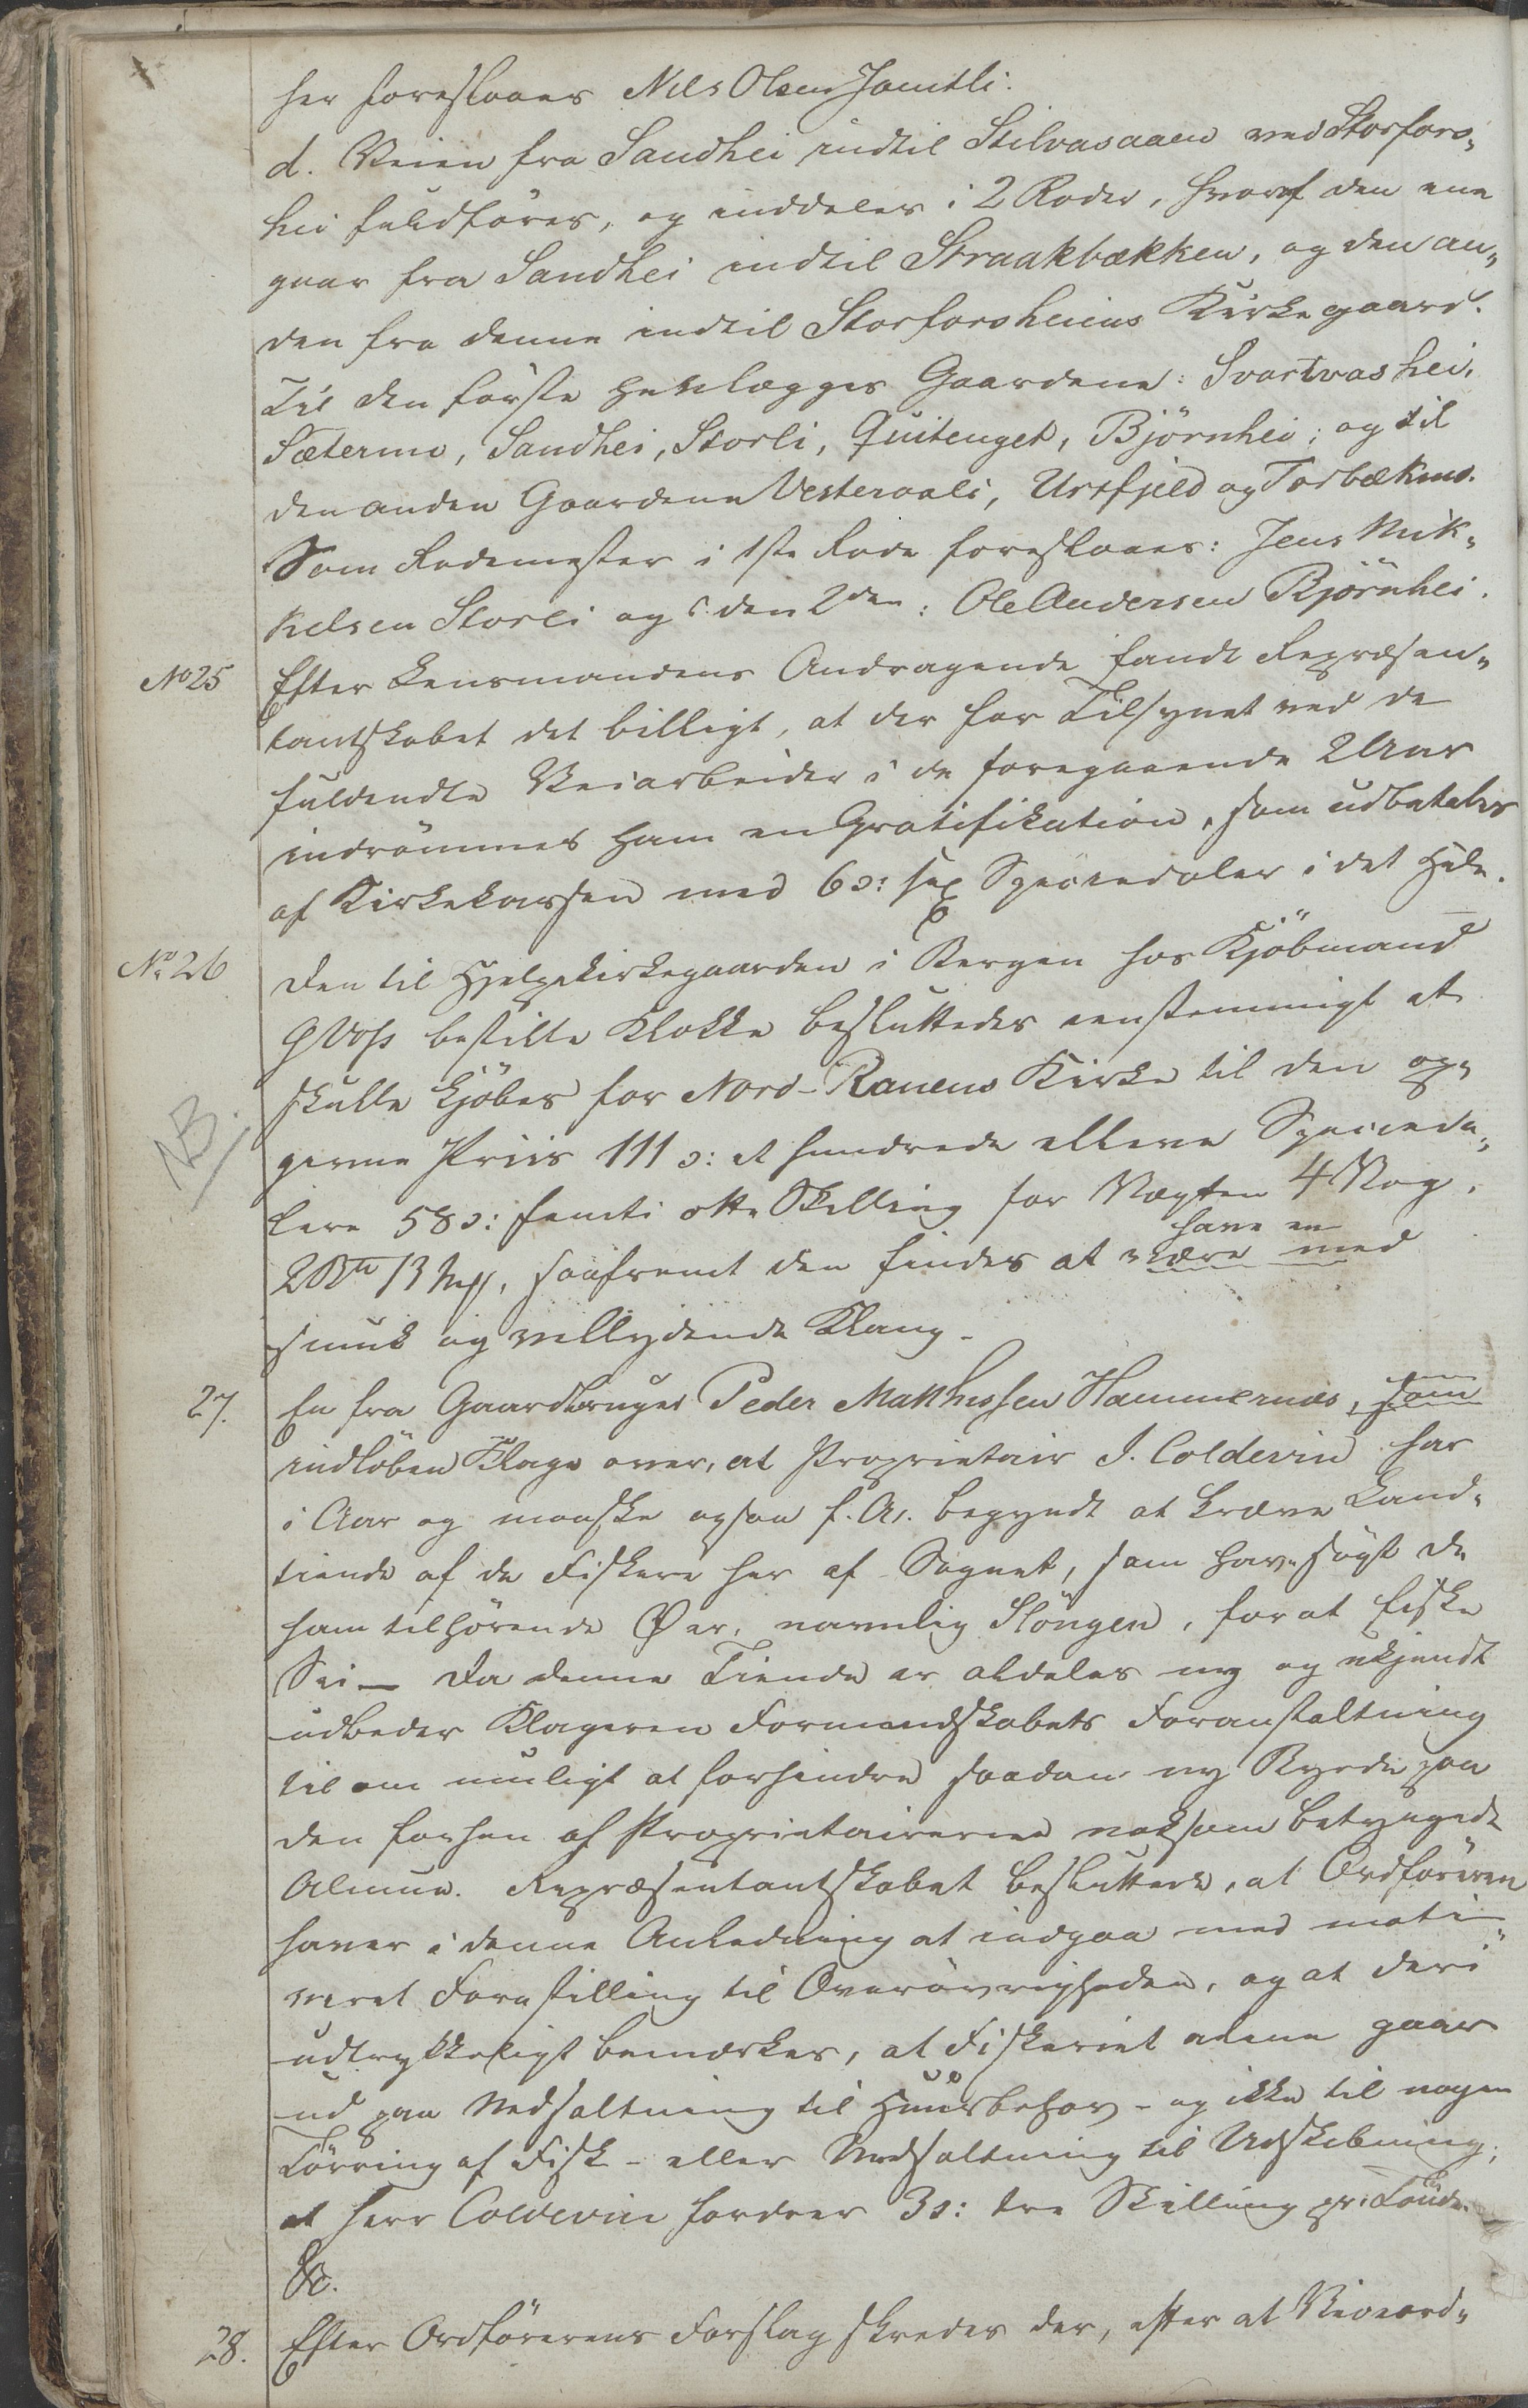 her foreslaaes Nils Olsen Jamtli.
d. Veien fra Sandhei indtil Stilvasaaen ved Storfors„
hei fuldføres, og inddeles i 2 Roder, hvoraf den ene
gaar fra Sandhei indtil Straakbækken, og den an„
den fra denne indtil Storforsheiens Kirkegaard.
Til den første henlægges Gaardene: Svartvashei,
Sætermo, Sandhei, Storli, Quitenget, Bjørnhei; og til
den anden Gaardene Vesteraali, Urtfjeld og Torbækmo.
Som Rodemester i 1ste Rode foreslaaes: Jens Mik„
kelsen Storli og i den 2den: Ole Andersen Bjørnhei.
No 25 Efter Lensmandens Andragende fandt Repræsen„
tantskabet det billigt, at der for Tilsynet ved de
fuldendte Veiarbeider i de foregaaende 2 Aar
indrømmes ham en Gratifikation, som udbetales
af Kirkekassen med 6 ɔ: sex Speciedaler i det Hele.
No 26 Den til Hjelpekirkegaarden i Bergen hos Kjøbmand
G Voss bestilte Klokke besluttedes eenstemmigt at
skulle kjøbes for Nord-Ranens Kirke til den op„
NB.
givne Priis 111 ɔ: et hundrede elleve Specieda„
lere 58 ɔ: femti otte Skilling for Vægten 4 Vog,
have en
2 B℔ 13 Mꝶ, saafremt den findes at være med
smuk og vellydende Klang.
27. En fra Gaardbruger Peder Mathissen Hammernæs, som
indløben Klage over, at Proprietair I. Coldevin har
i Aar og maaske ogsaa f. A. begyndt at kræve Land„
tiende af de Fiskere her af Sognet, som have søgt de
ham tilhørende Øer, navnlig Sløngen, for at fiske
Sei — Da denne Tiende er aldeles ny og ukjendt
udbeder Klageren Formandskabets Foranstaltning
til om muligt at forhindre saadan ny Byrde paa
den forhen af Proprietairerne noksom betyngede
Almue. Repræsentantskabet besluttede, at Ordføreren
haver i denne Anledning at indgaa med moti„
veret Forestilling til Overøvrigheden, og at deri
udtrykkeligt bemærkes, at Fiskeriet alene gaar
ud paa Nedsaltning til Huusbehov – og ikke til nogen
Tørring af Fisk – eller Nedsaltning til Udskibning,
at Herr Coldevin fordrer 3 ɔ: tre Skilling pr. Tønde.
&c.
28. Efter Ordførerens Forslag skredes der, efter at Viceord„